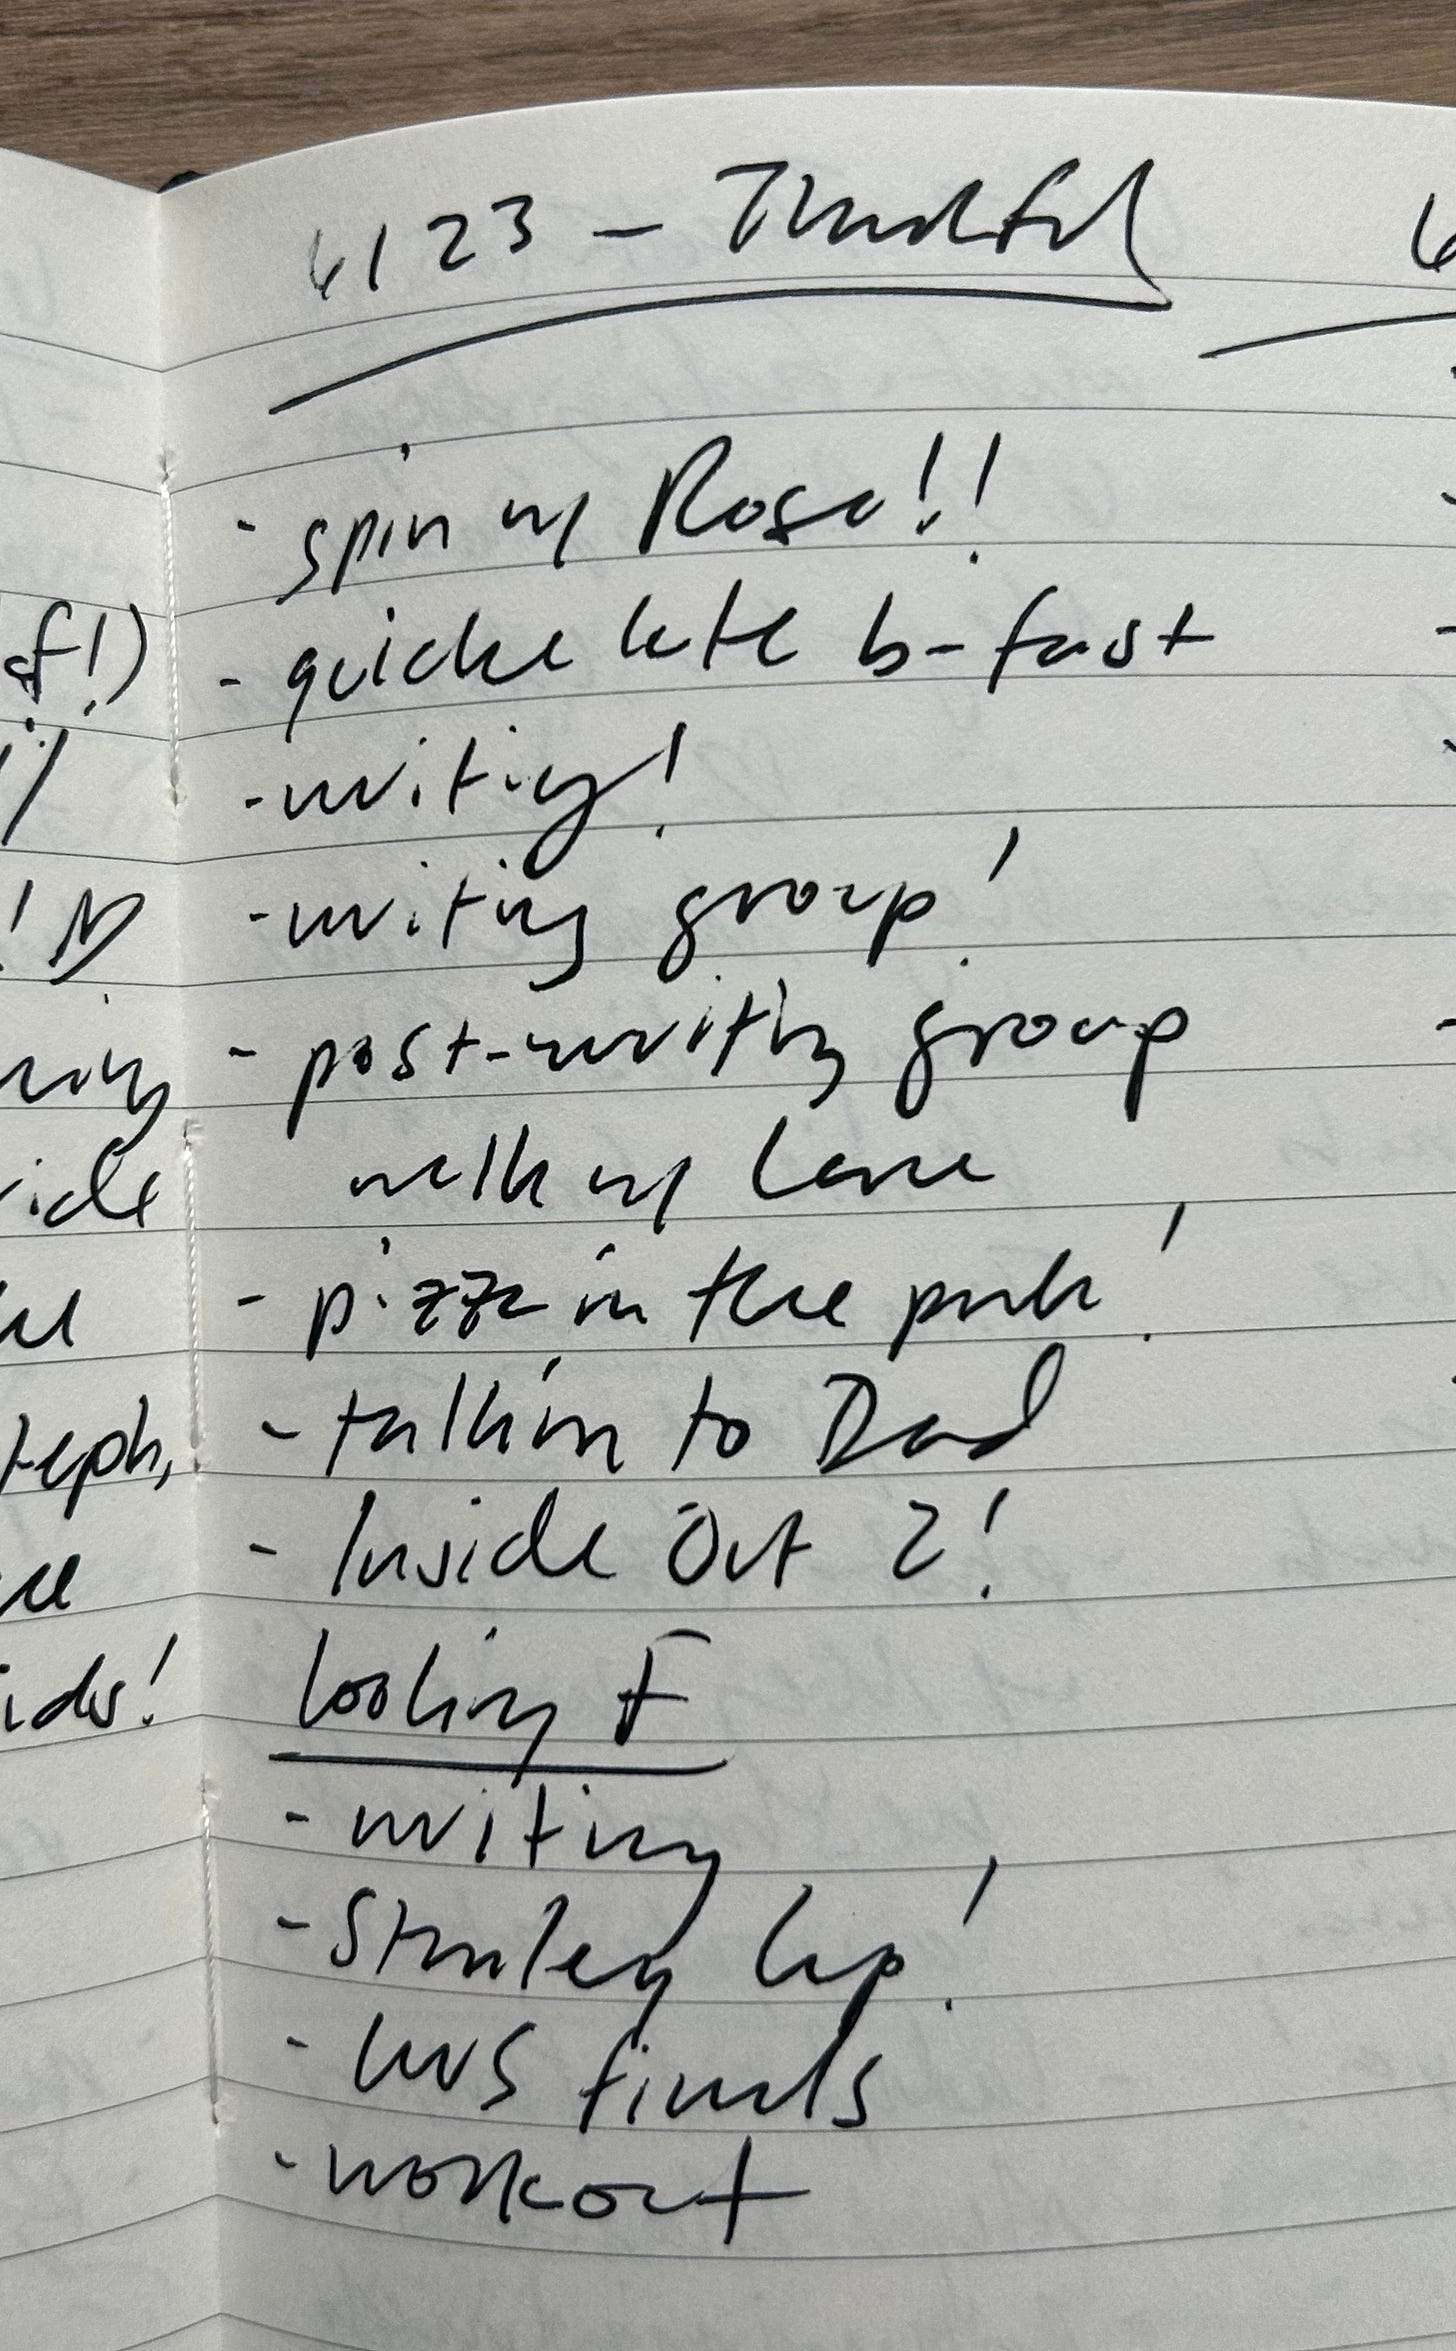 teph,
ids!
6/23 - Thankful
- spin w/ Rosa!!
- quiche late b-fast
- writing!
- writing group!
- post-writing group
walk w/
- pizza in the park!
- talkin to Dad
- Inside Out 2!
looking F
- writing
- Stanley Cup!
- CWS finals
- workout